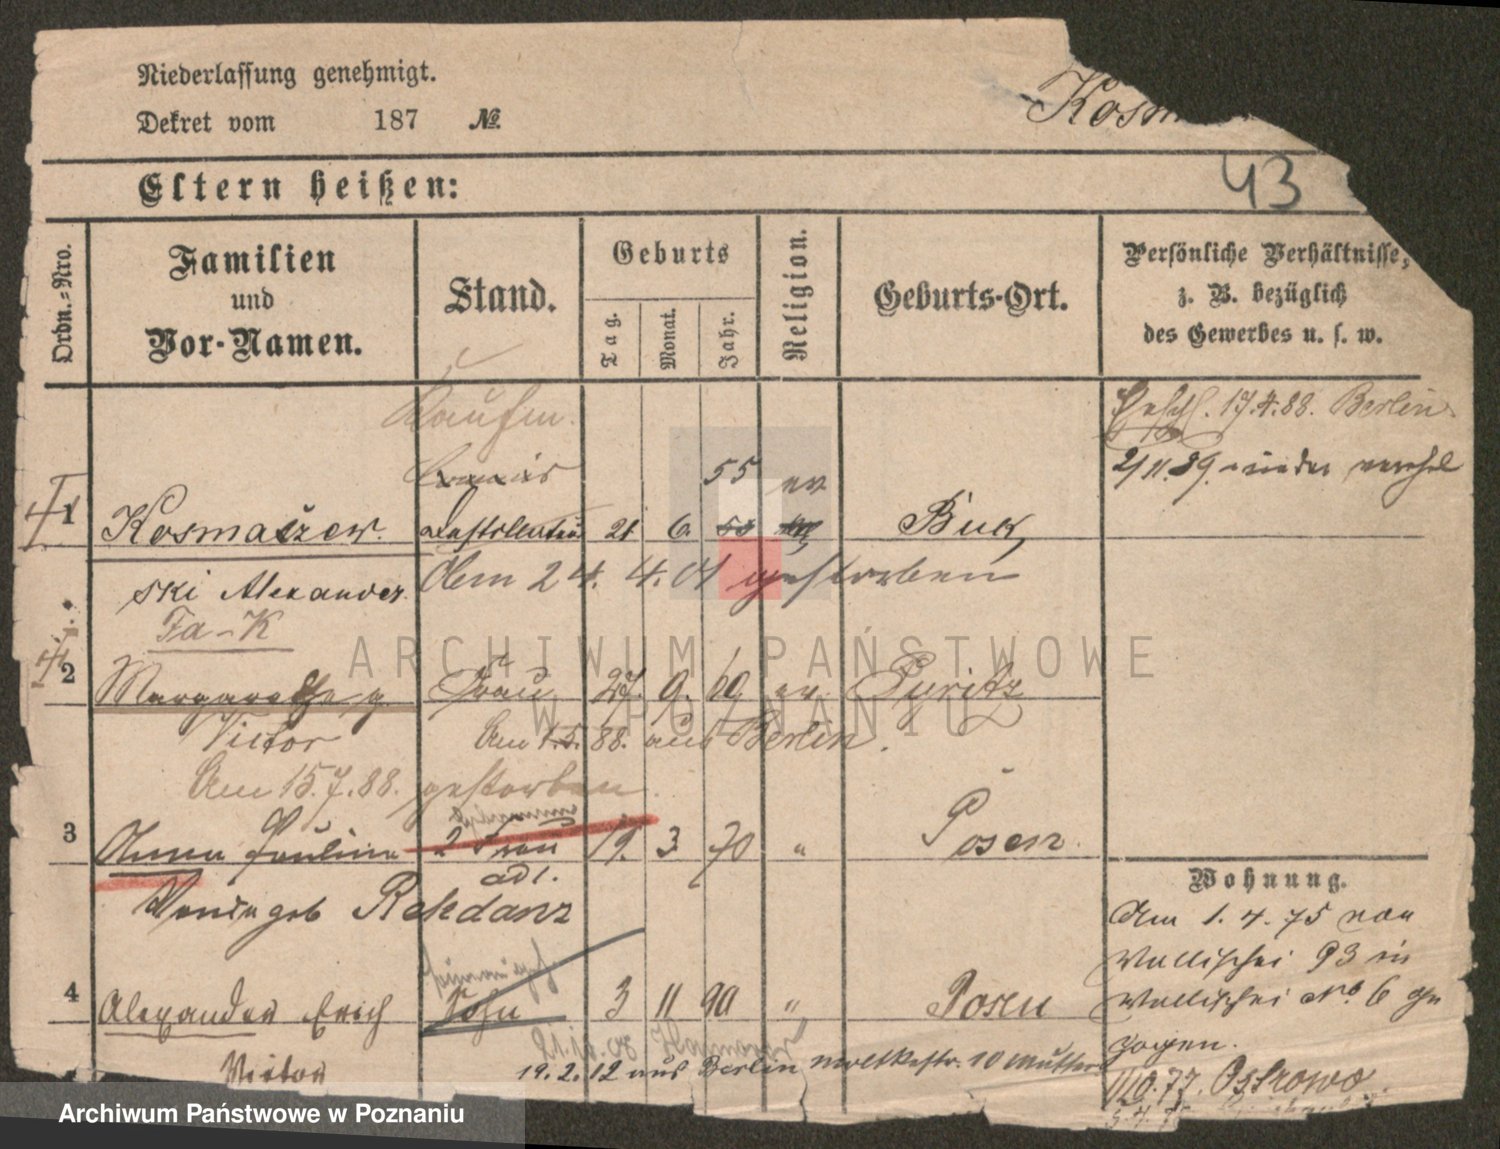 Niederlassung genehmigt.
Dekret vom 187 №.
Kosm
43
Eltern heißen:
Ordn.=Nro.
Familien
und
Vor-Namen.
Stand.
Geburts
Tag.
Monat.
Jahr.
Religion.
Geburts-Ort.
Persönliche Verhältnisse,
z. B. bezüglich
des Gewerbes u. s. w.
Kaufm.
17.4.88. Berlin
55 ev
2/11.89. wieder verehel
1 Kosmaczew. 21 6. 53 Buk
ski Alexander. Am 24. 4. 01 gestorben
Fa-K
2 Margarethe g Frau 27. 9. 60 ev. Pyritz
Victor Am 1.5. 88. aus Berlin.
Am 15.7.88. gestorben.
3 Anna Pauline 2 Frau 19. 3 70 " Posen.
ad 1.
geb Rehdanz
Wohnung.
Am 1. 4. 75 von
Wallischei 93 in
4 Alexander Erich Sohn 3 11 90 " Posen
Wallischei No 6 ge
zogen.
Victor
19.2.12 aus Berlin Moltkestr. 10 Mutter
1/10.77. Ostrowo.
ARCHIWUM PAŃSTWOWE
W POZNANIU
Archiwum Państwowe w Poznaniu